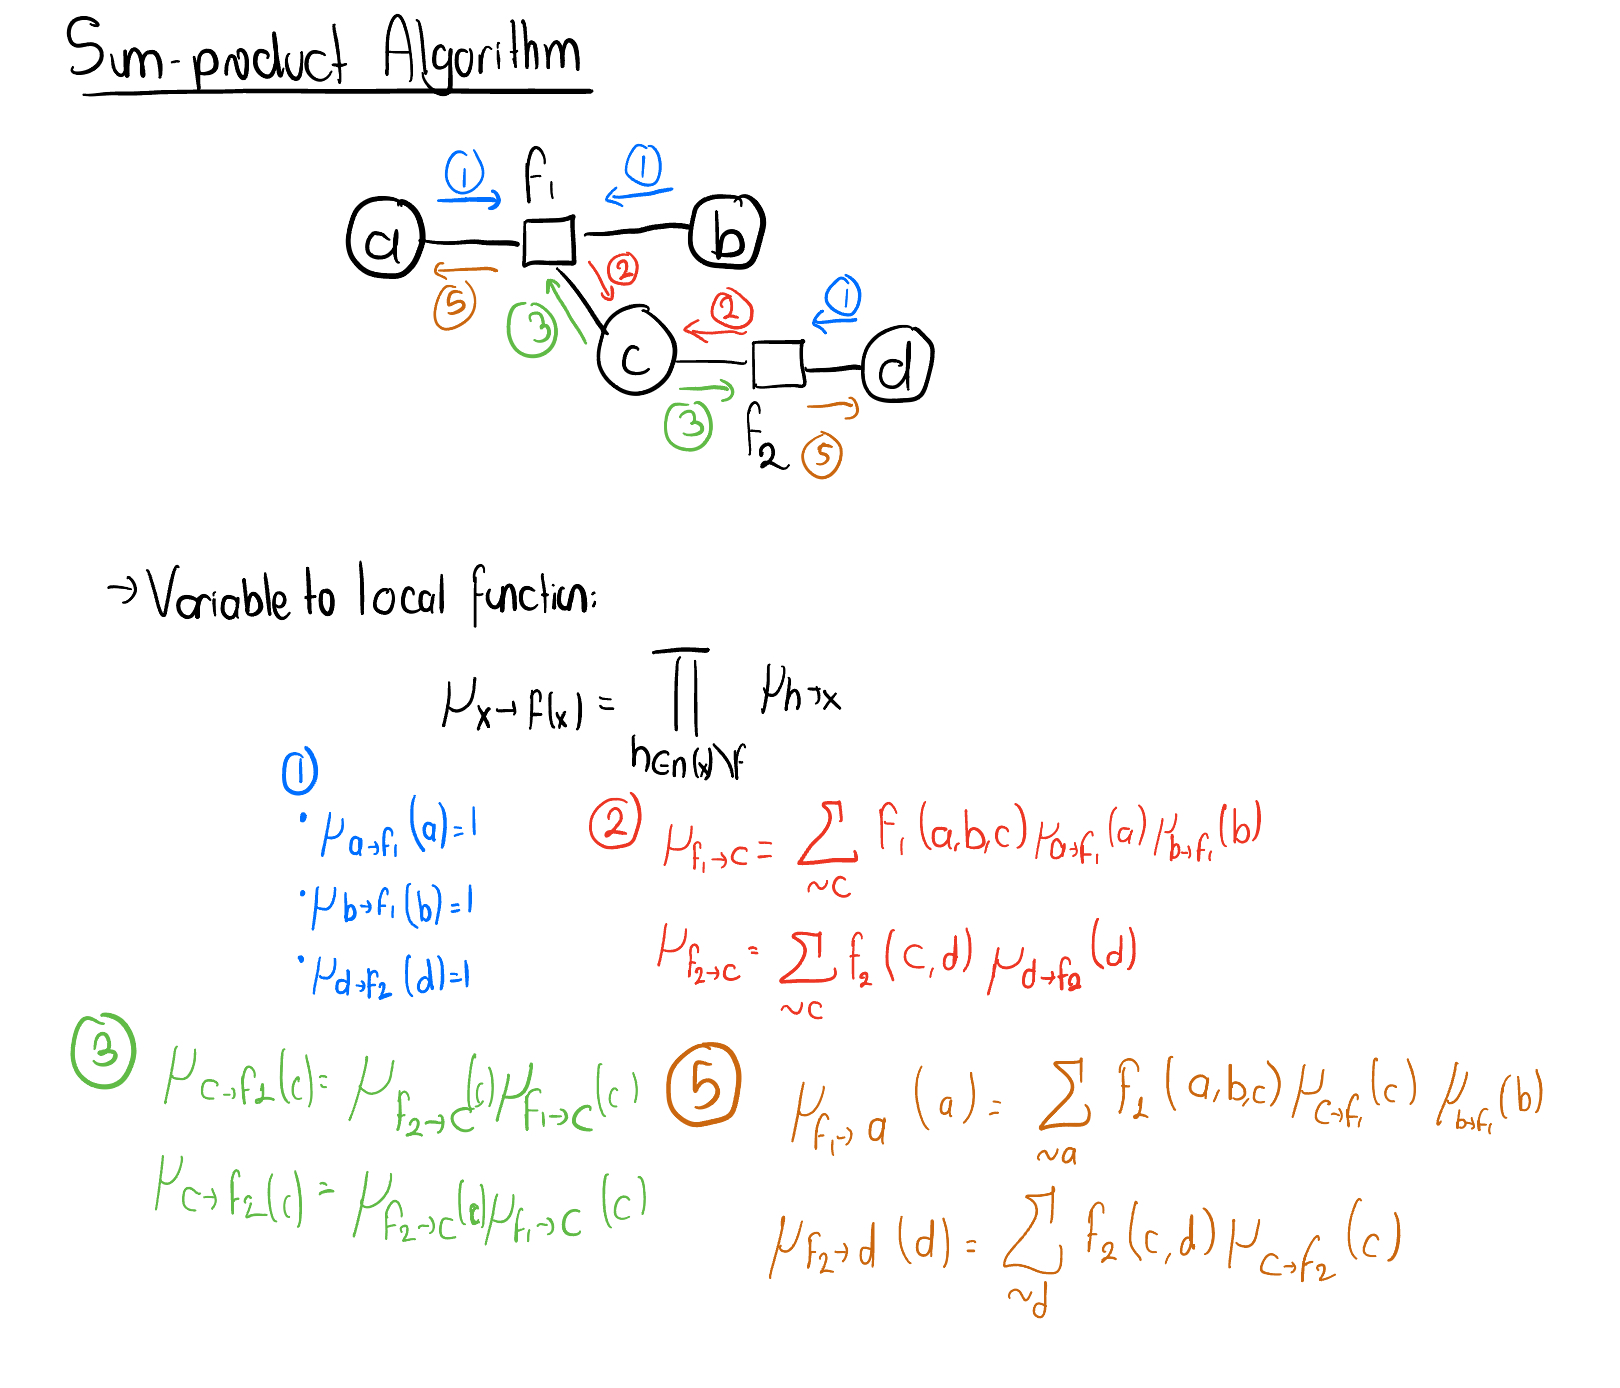 Sum-product Algorithm
① f₁ ①
a b
② 
⑤ ③ ② ①
c d
③ f₂ ⑤
→ Variable to local function:
μ_{x→f(x)} = ∏_{h∈n(x)\f} μ_{h→x}
①
• μ_{a→f₁}(a)=1
• μ_{b→f₁}(b)=1
• μ_{d→f₂}(d)=1
② μ_{f₁→c} = ∑_{~c} f₁(a,b,c) μ_{a→f₁}(a) μ_{b→f₁}(b)
μ_{f₂→c} = ∑_{~c} f₂(c,d) μ_{d→f₂}(d)
③ μ_{c→f₂}(c) = μ_{f₂→c}(c) μ_{f₁→c}(c)
μ_{c→f₂}(c) = μ_{f₂→c}(c) μ_{f₁→c}(c)
⑤ μ_{f₁→a}(a) = ∑_{~a} f₂(a,b,c) μ_{c→f₁}(c) μ_{b→f₁}(b)
μ_{f₂→d}(d) = ∑_{~d} f₂(c,d) μ_{c→f₂}(c)